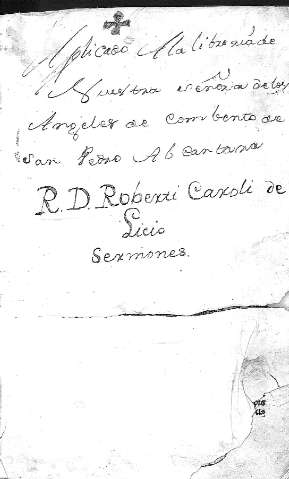 Aplicado A la libreria de
Nuestra señora de los
Angeles de combento de
san Pedro Alcantara
R. D. Roberti Caroli de
Licio
Sermones.